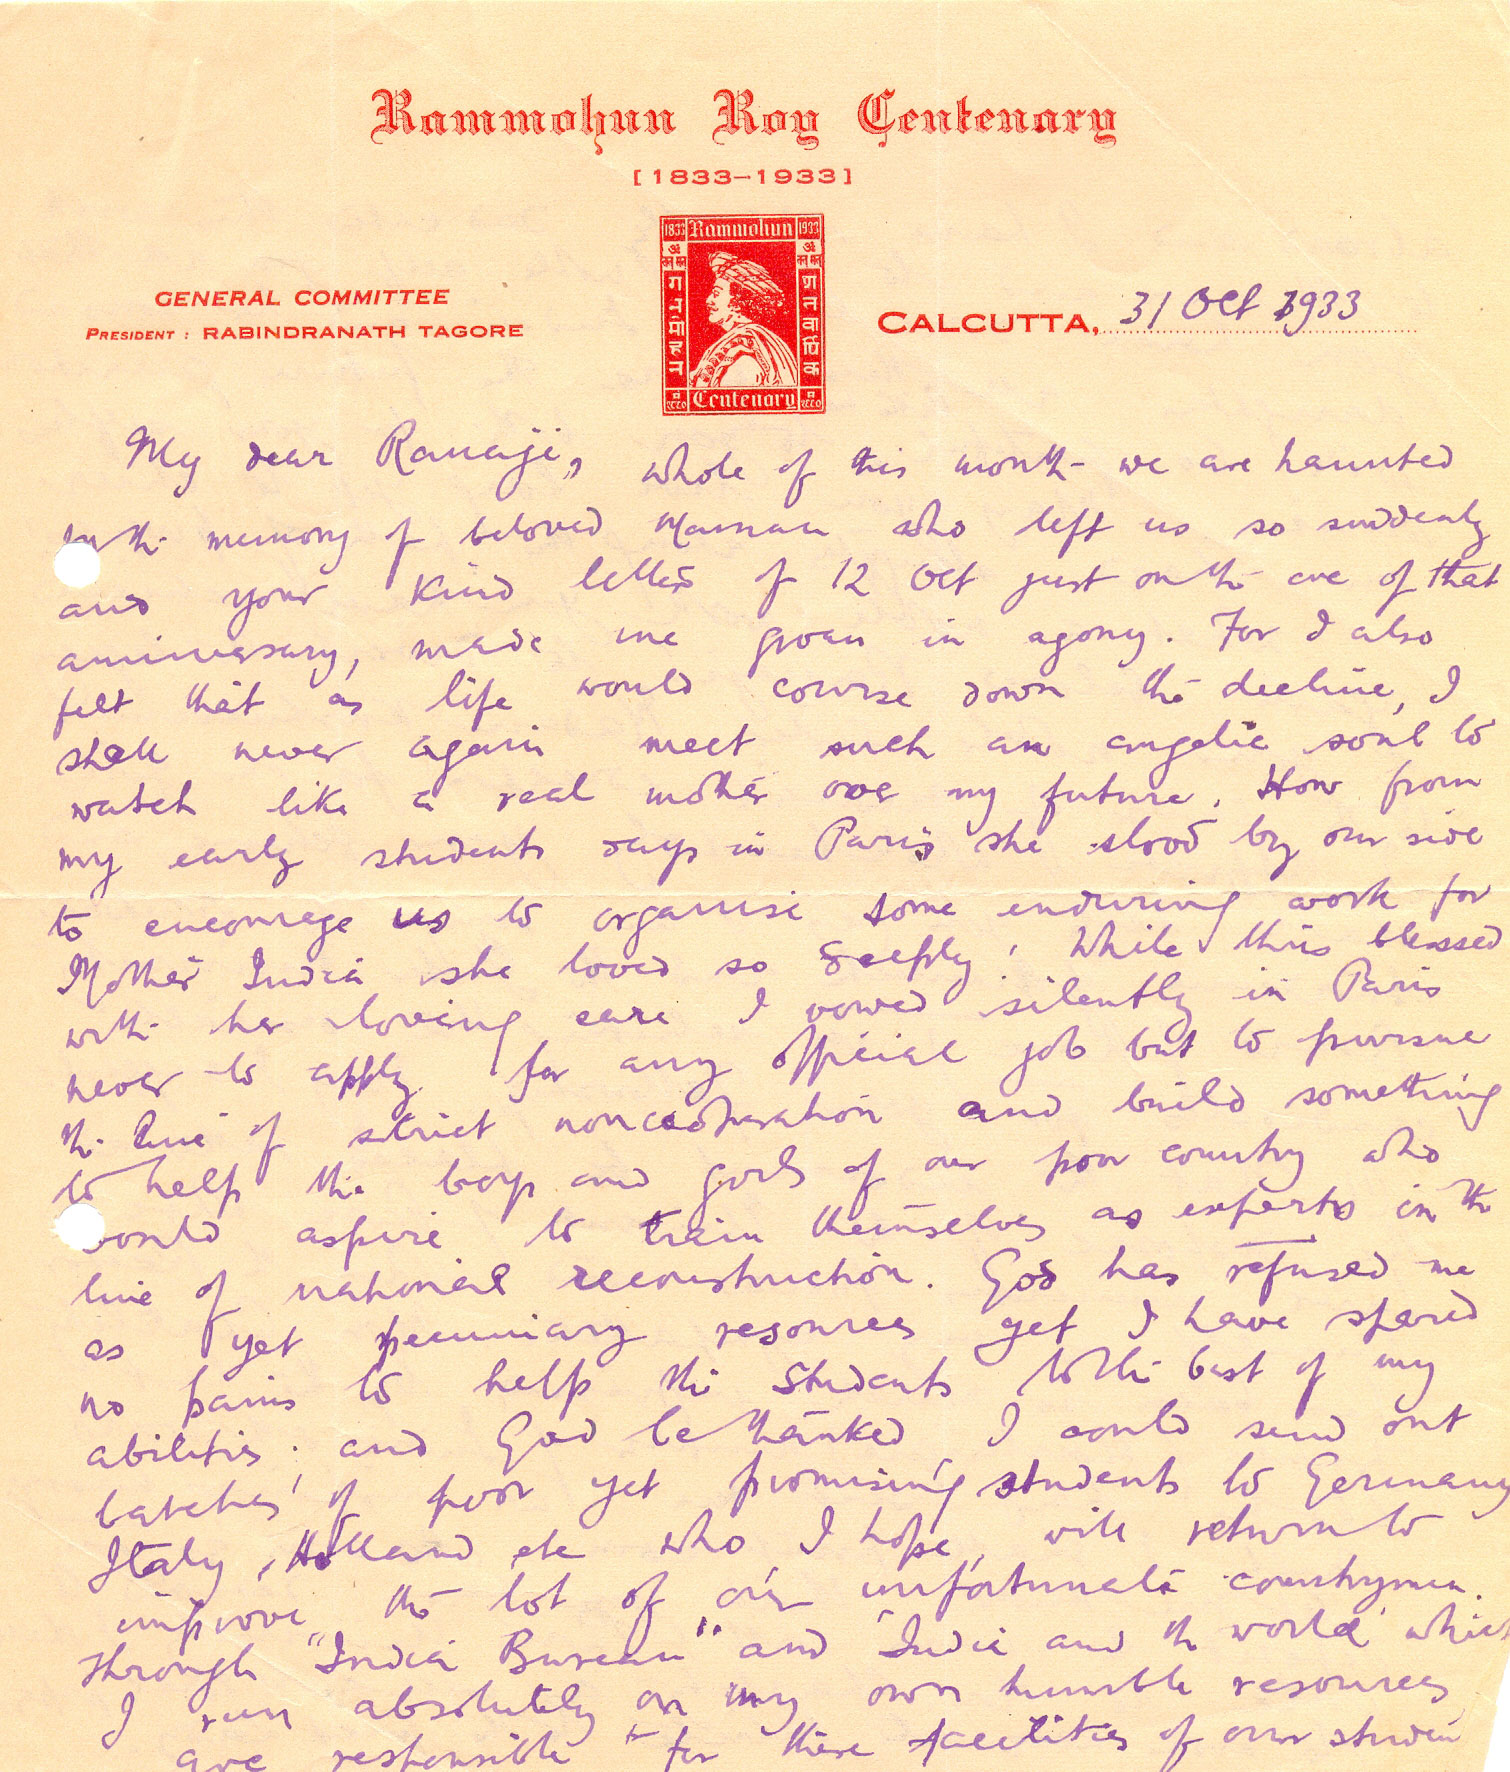 Rammohun Roy Centenary
[ 1833–1933 ]
1833 Rammohun 1933
राममोहन
शतवार्षिक
Centenary
GENERAL COMMITTEE
PRESIDENT : RABINDRANATH TAGORE
CALCUTTA, 31 Oct 1933
My dear Ranaji, whole of this month we are haunted
by the memory of beloved Maman who left us so suddenly
and your kind letter of 12 Oct just on the eve of that
anniversary, made me groan in agony. For I also
felt that as life would course down the decline, I
shall never again meet such an angelic soul to
watch like a real mother over my future. How from
my early students days in Paris she stood by our side
to encourage us to organise some enduring work for
Mother India she loved so deeply! While thus blessed
with her loving care I vowed silently in Paris
never to apply for any official job but to pursue
the line of strict noncooperation and build something
to help the boys and girls of our poor country who
would aspire to train themselves as experts in the
line of national reconstruction. God has refused me
as yet pecuniary resources yet I have spared
no pains to help the students to the best of my
abilities; and God be thanked I could send out
batches of poor yet promising students to Germany
Italy, Holland etc who I hope, will return to
improve the lot of our unfortunate countrymen.
Through "India Bureau" and 'India and the world' which
I run absolutely on my own humble resources
are responsible for these facilities of our studen